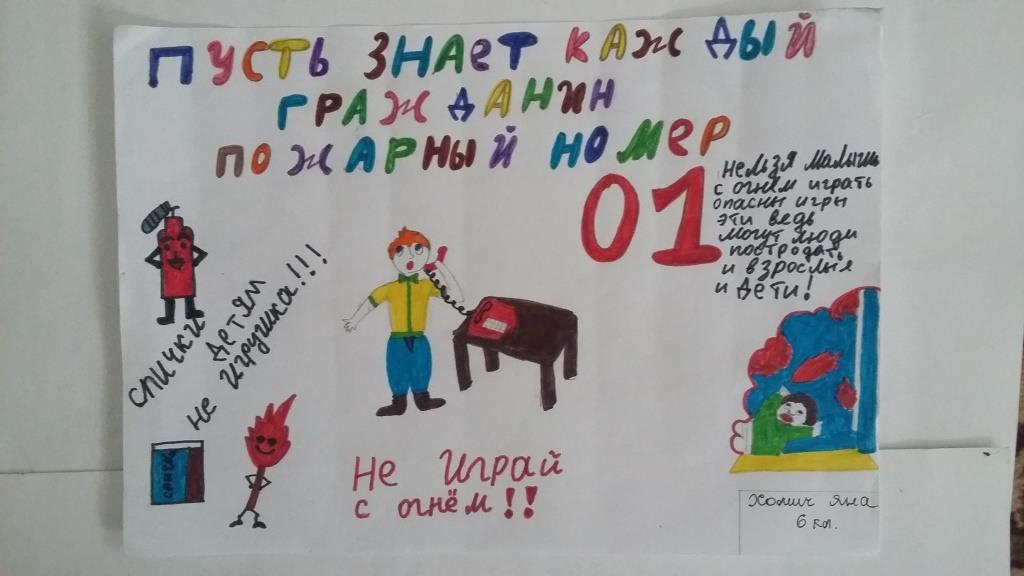 Пусть знает каждый
гражданин
пожарный номер
01
нельзя малыши
с огнём играть
опасны игры
эти ведь
могут люди
постродать
и взрослыя
и дети!
спички
детям
не игрушка!!!
спички
Не играй
с огнём!!
Холич Яна
6 кл.